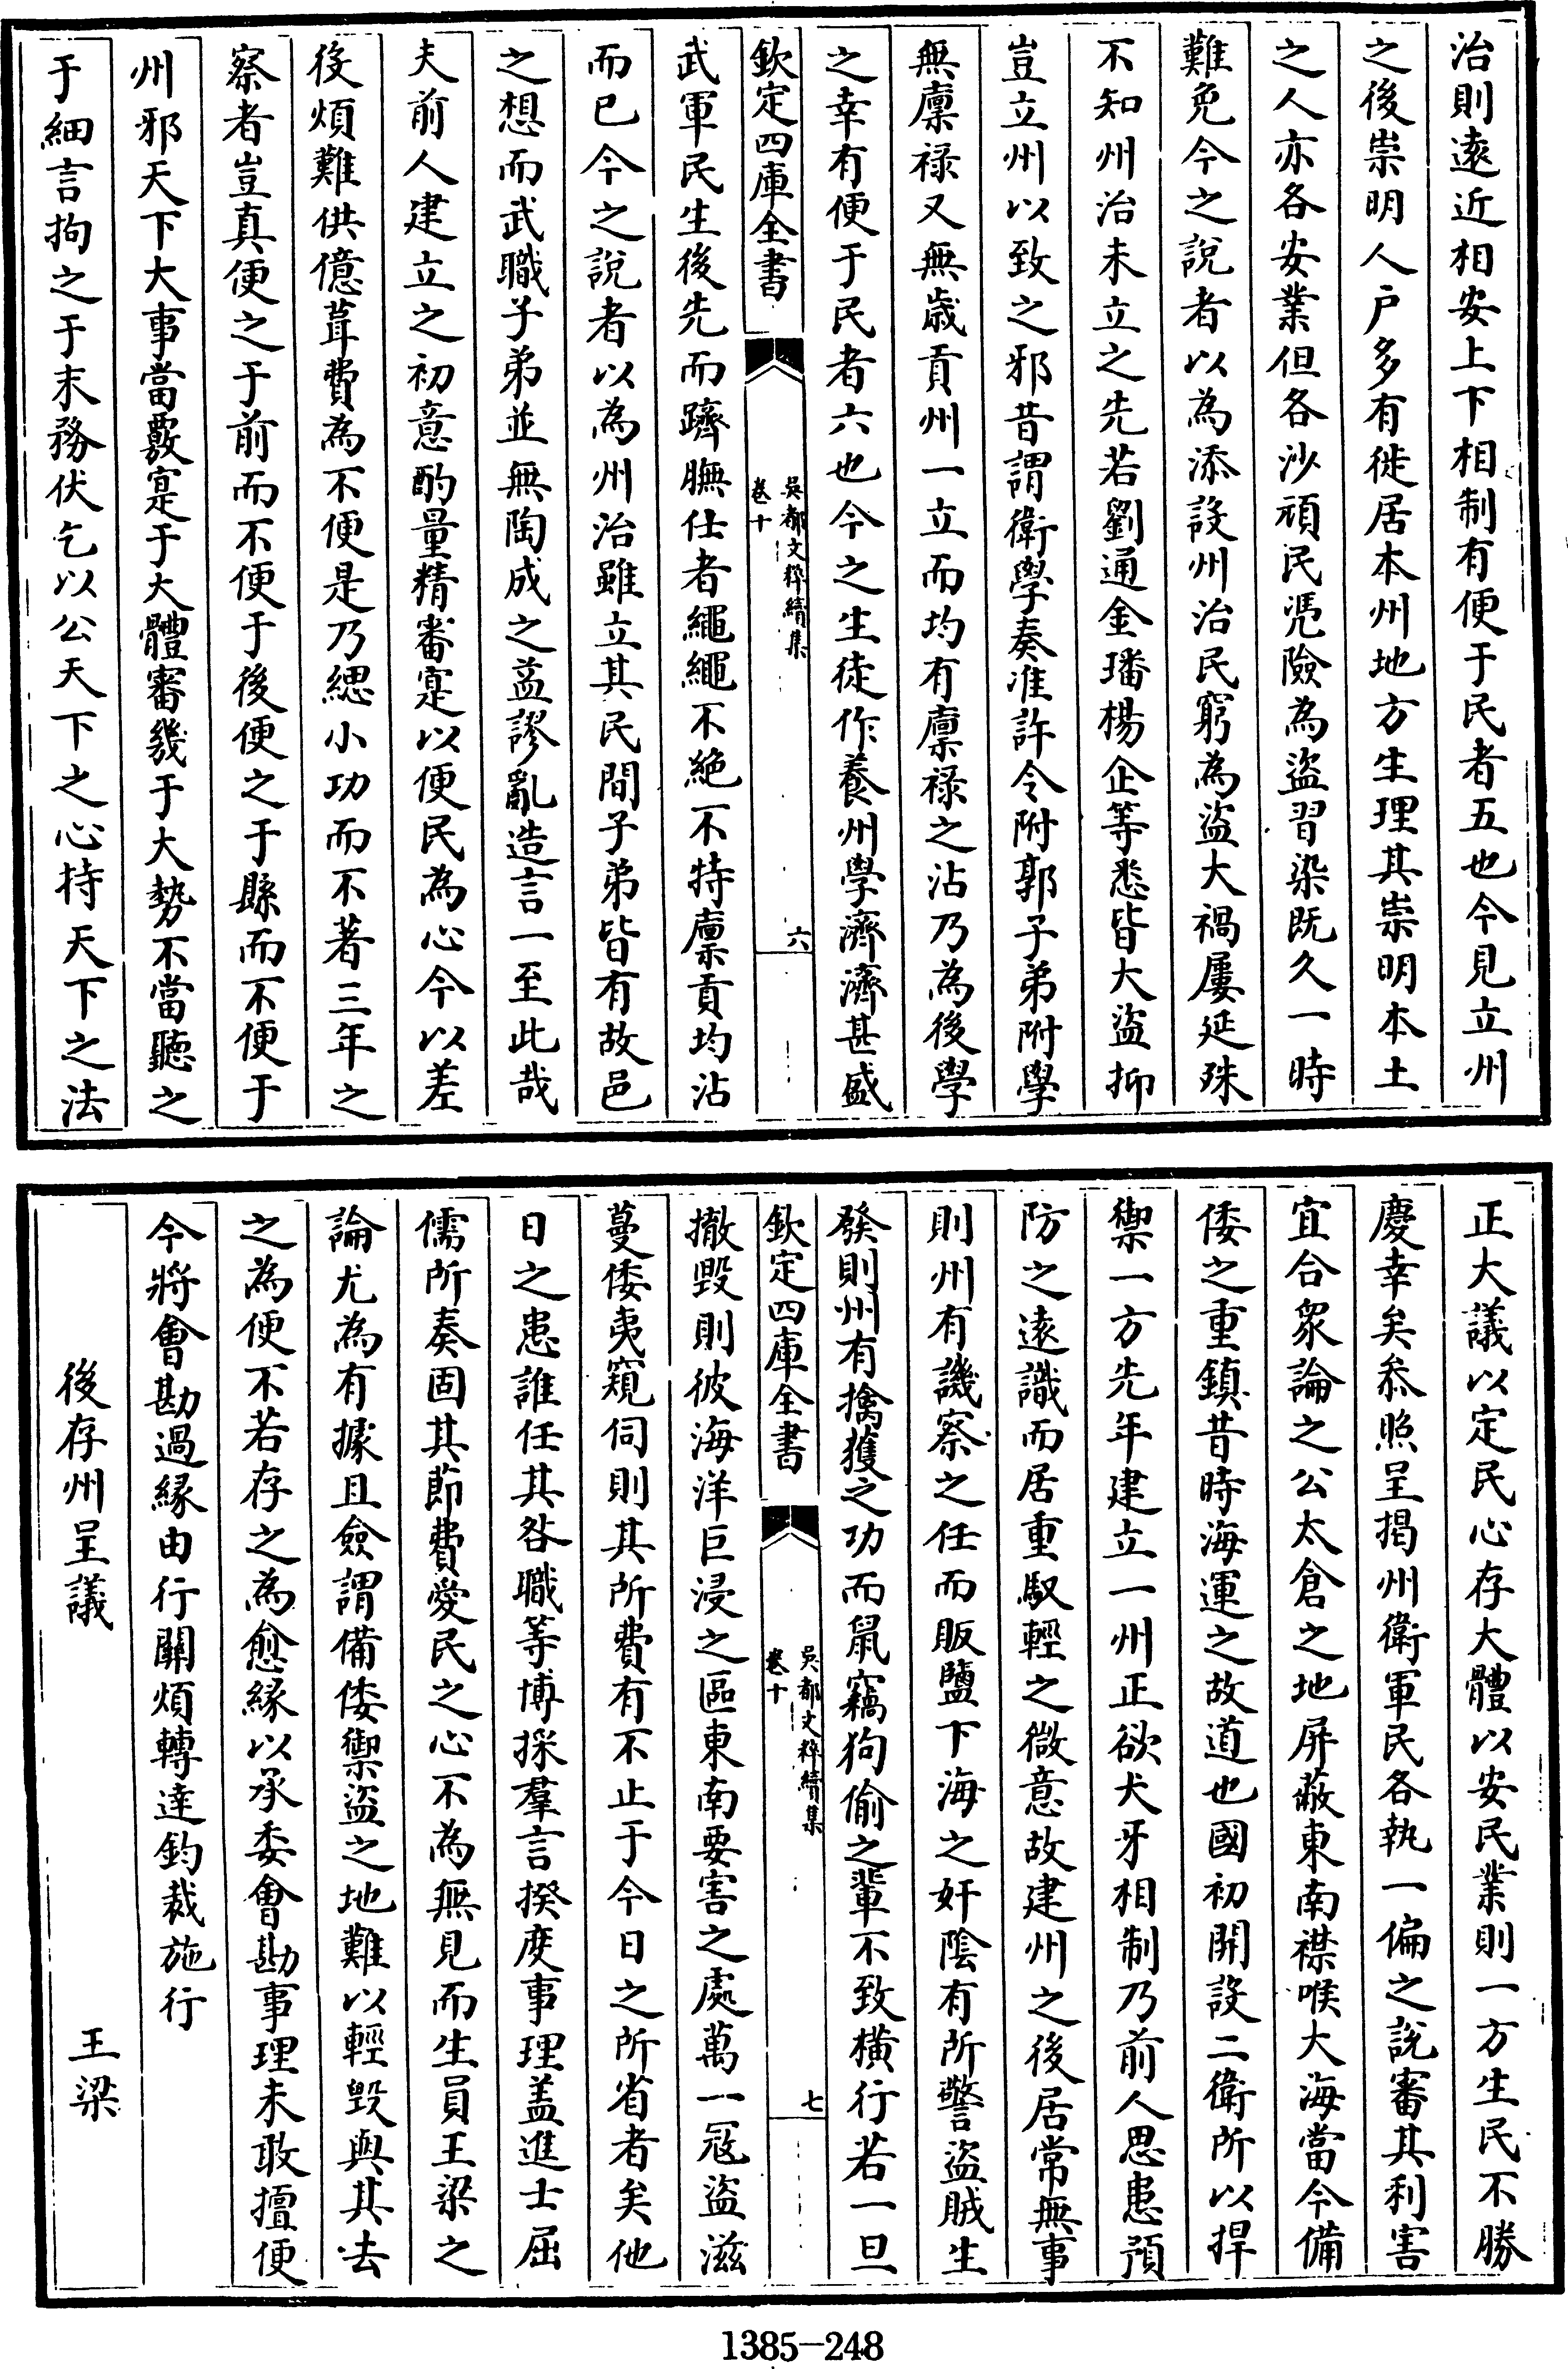 治則遠近相安上下相制有便于民者五也今見立州
之後崇明人戶多有徙居本州地方生理其崇明本土
之人亦各安業但各沙頑民凭險為盜習染既久一時
難免今之說者以為添設州治民窮為盜大禍屢延殊
不知州治未立之先若劉通金璠楊企等悉皆大盜抑
豈立州以致之邪昔謂衛學奏准許令附郭子弟附學
無廪禄又無歲貢州一立而均有廪禄之沾乃為後學
之幸有便于民者六也今之生徒作養州學濟濟甚盛
欽定四庫全書
吳都文粹續集
卷十
六
武軍民生後先而躋膴仕者繩繩不絶不特廪貢均沾
而已今之說者以為州治雖立其民間子弟皆有故邑
之想而武職子弟並無陶成之益謬亂造言一至此哉
夫前人建立之初意酌量精審寔以便民為心今以差
役煩難供億葺費為不便是乃緦小功而不著三年之
察者豈真便之于前而不便于後便之于縣而不便于
州邪天下大事當覈寔于大體審幾于大勢不當聽之
于細言拘之于末務伏乞以公天下之心持天下之法
正大議以定民心存大體以安民業則一方生民不勝
慶幸矣叅照呈揭州衛軍民各執一偏之說審其利害
宜合衆論之公太倉之地屏蔽東南襟喉大海當今備
倭之重鎮昔時海運之故道也國初開設二衛所以捍
禦一方先年建立一州正欲犬牙相制乃前人思患預
防之遠識而居重馭輕之微意故建州之後居常無事
則州有譏察之任而販鹽下海之奸陰有所警盜賊生
發則州有擒獲之功而鼠竊狗偷之輩不致橫行若一旦
欽定四庫全書
吳都文粹續集
卷十
七
撤毀則彼海洋巨浸之區東南要害之處萬一冦盜滋
蔓倭夷窺伺則其所費有不止于今日之所省者矣他
日之患誰任其咎職等博採羣言揆度事理盖進士屈
儒所奏固其節費愛民之心不為無見而生員王梁之
論尤為有據且僉謂備倭禦盜之地難以輕毀與其去
之為便不若存之為愈緣以承委會勘事理未敢擅便
今將會勘過緣由行關煩轉達鈞裁施行
後存州呈議
王梁
1385-248